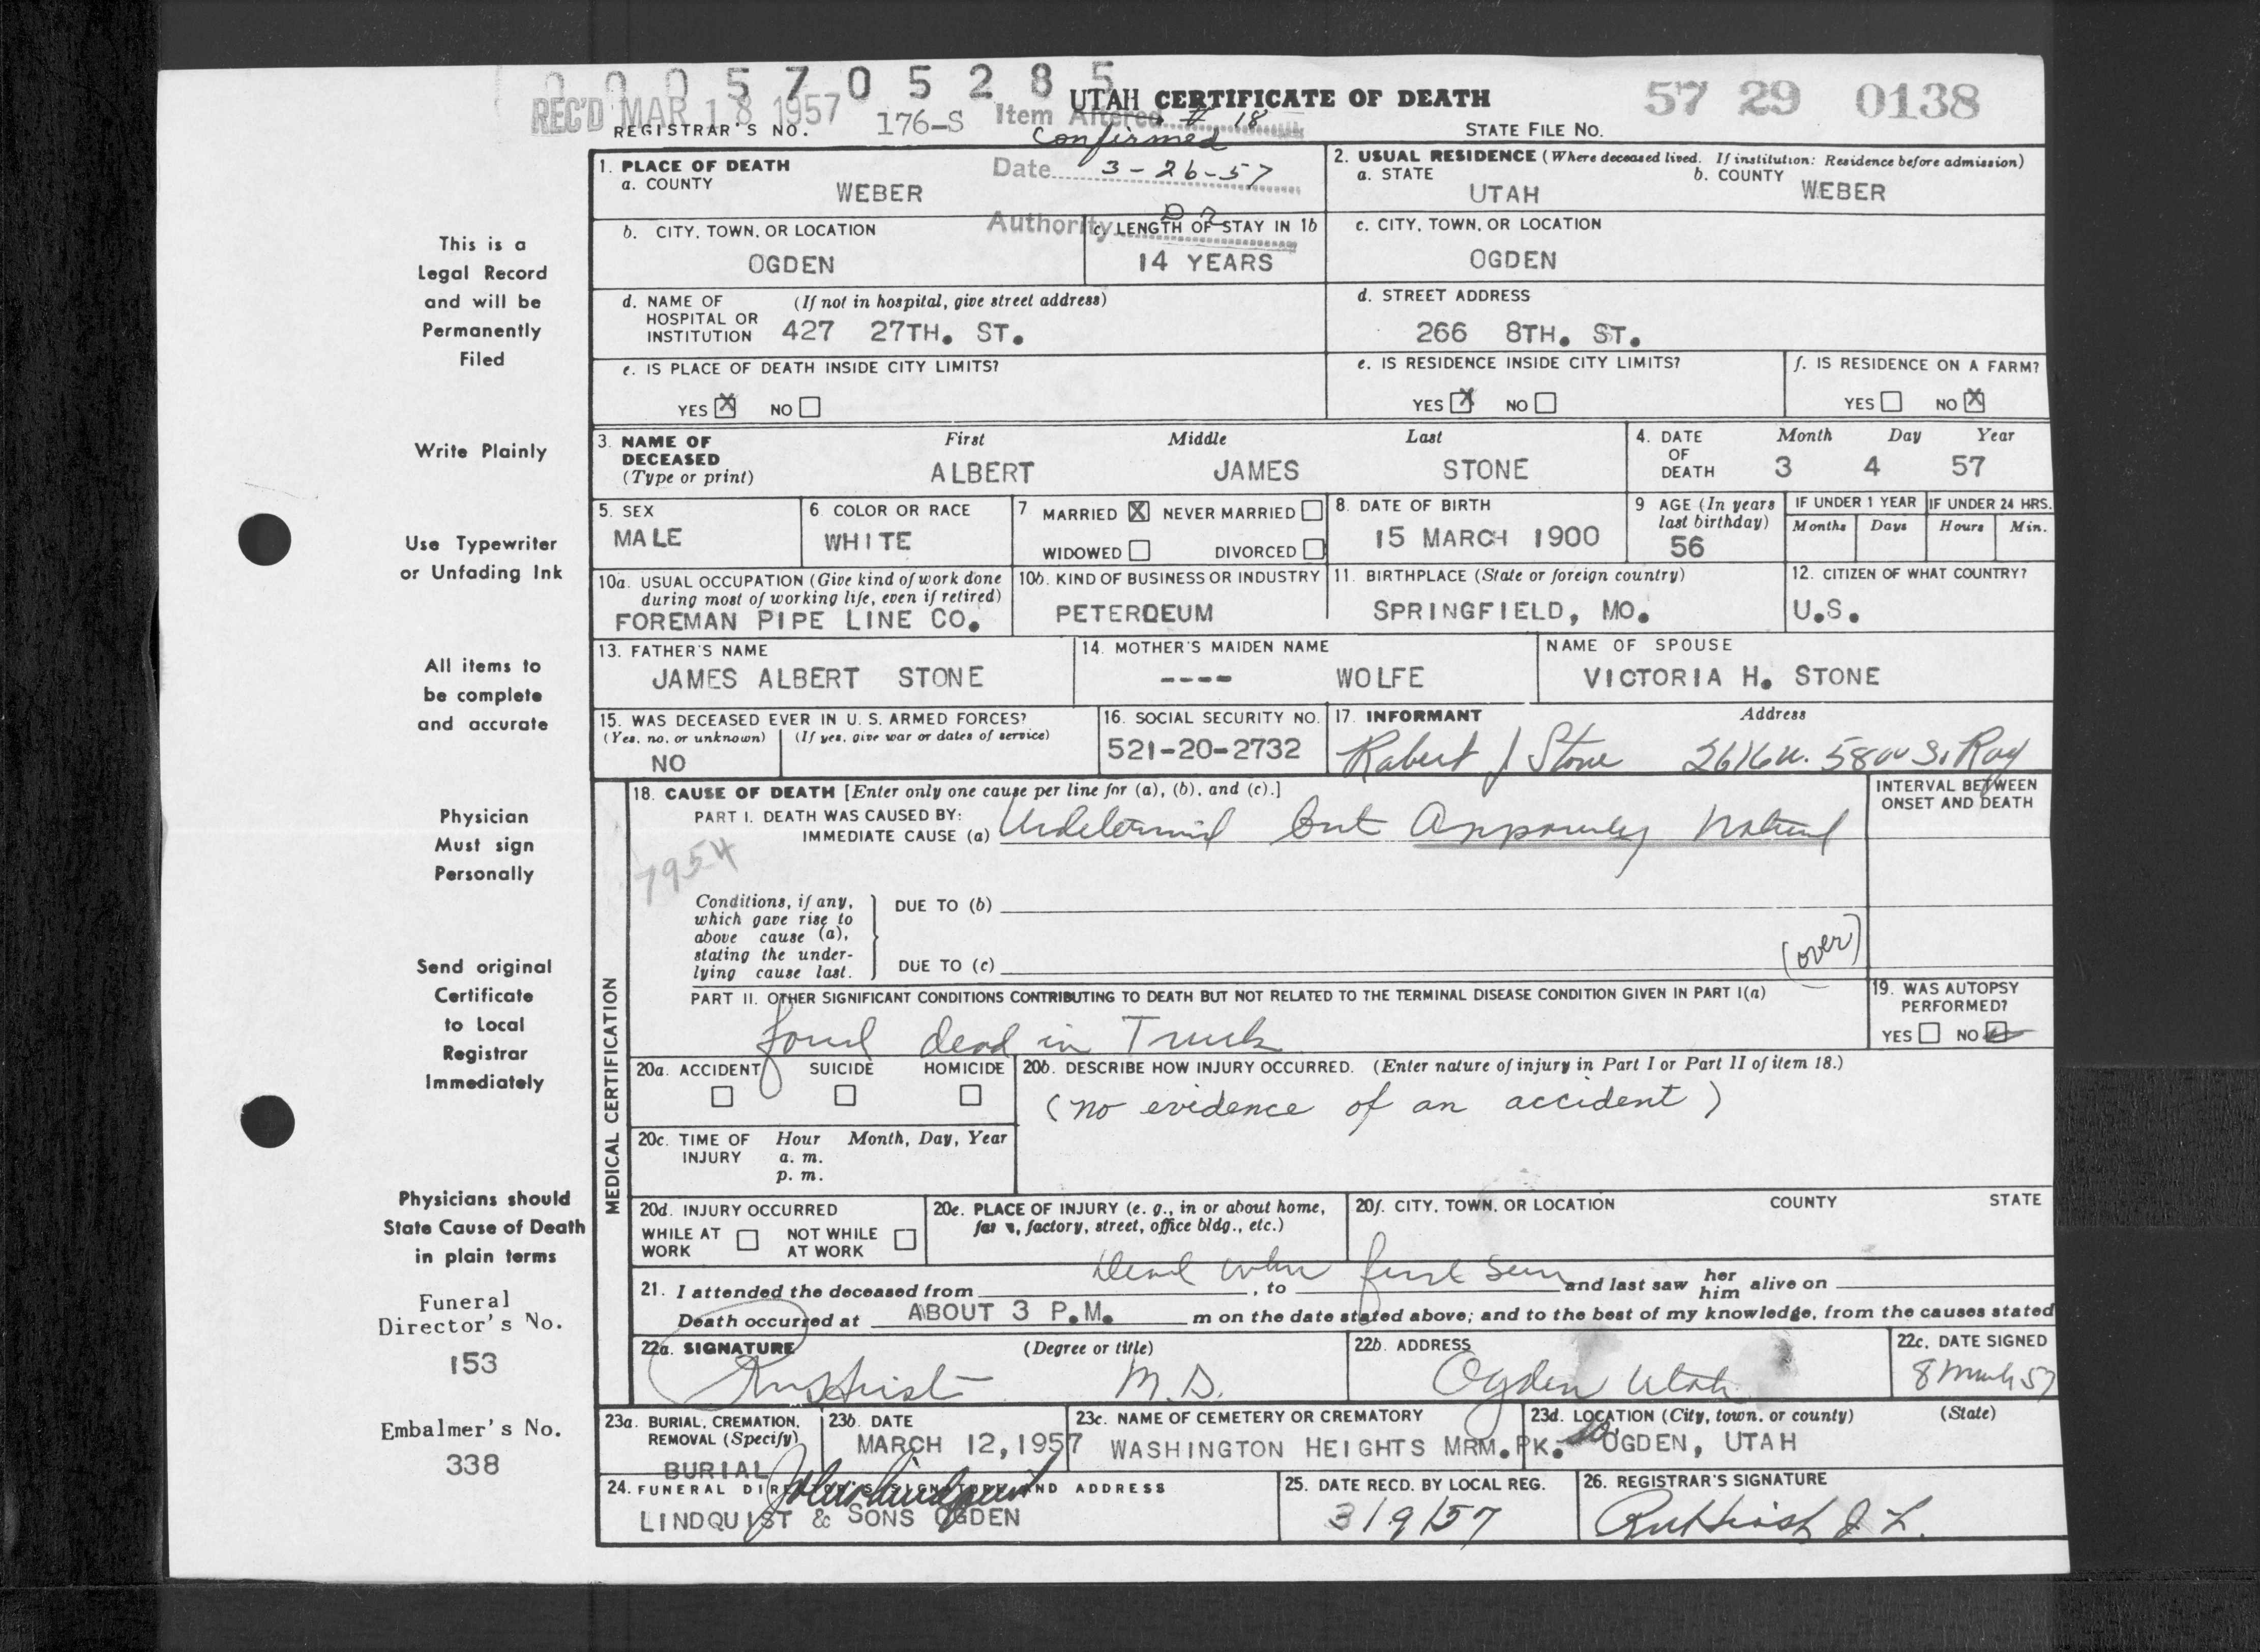 0 0 0 5 7 0 5 2 8 5
REC'D MAR 18 1957
REGISTRAR'S NO. 176-S
Item Altered # 18
confirmed
UTAH CERTIFICATE OF DEATH
57 29 0138
STATE FILE NO.
Date 3-26-57
Authority Dr
1. PLACE OF DEATH
a. COUNTY
WEBER
2. USUAL RESIDENCE (Where deceased lived. If institution: Residence before admission)
a. STATE
UTAH
b. COUNTY
WEBER
b. CITY, TOWN, OR LOCATION
OGDEN
c. LENGTH OF STAY IN 1b
14 YEARS
c. CITY, TOWN, OR LOCATION
OGDEN
d. NAME OF HOSPITAL OR INSTITUTION
(If not in hospital, give street address)
427 27TH. ST.
d. STREET ADDRESS
266 8TH. ST.
e. IS PLACE OF DEATH INSIDE CITY LIMITS?
YES X NO
e. IS RESIDENCE INSIDE CITY LIMITS?
YES X NO
f. IS RESIDENCE ON A FARM?
YES NO X
3. NAME OF DECEASED (Type or print)
First Middle Last
ALBERT JAMES STONE
4. DATE OF DEATH
Month Day Year
3 4 57
5. SEX
MALE
6. COLOR OR RACE
WHITE
7 MARRIED X NEVER MARRIED
WIDOWED DIVORCED
8. DATE OF BIRTH
15 MARCH 1900
9 AGE (In years last birthday)
56
IF UNDER 1 YEAR
Months Days
IF UNDER 24 HRS.
Hours Min.
10a. USUAL OCCUPATION (Give kind of work done during most of working life, even if retired)
FOREMAN PIPE LINE CO.
10b. KIND OF BUSINESS OR INDUSTRY
PETEROEUM
11. BIRTHPLACE (State or foreign country)
SPRINGFIELD, MO.
12. CITIZEN OF WHAT COUNTRY?
U.S.
13. FATHER'S NAME
JAMES ALBERT STONE
14. MOTHER'S MAIDEN NAME
---- WOLFE
NAME OF SPOUSE
VICTORIA H. STONE
15. WAS DECEASED EVER IN U. S. ARMED FORCES?
(Yes, no, or unknown) (If yes, give war or dates of service)
NO
16. SOCIAL SECURITY NO.
521-20-2732
17. INFORMANT Address
Robert J Stone 2616 W. 5800 S. Roy
MEDICAL CERTIFICATION
18. CAUSE OF DEATH [Enter only one cause per line for (a), (b), and (c).]
INTERVAL BETWEEN ONSET AND DEATH
PART I. DEATH WAS CAUSED BY:
IMMEDIATE CAUSE (a) Undetermined but Apparently Natural
7954
Conditions, if any, which gave rise to above cause (a), stating the underlying cause last.
DUE TO (b)
DUE TO (c)
(over)
PART II. OTHER SIGNIFICANT CONDITIONS CONTRIBUTING TO DEATH BUT NOT RELATED TO THE TERMINAL DISEASE CONDITION GIVEN IN PART I(a)
found dead in Truck
19. WAS AUTOPSY PERFORMED?
YES NO
20a. ACCIDENT SUICIDE HOMICIDE
20b. DESCRIBE HOW INJURY OCCURRED. (Enter nature of injury in Part I or Part II of item 18.)
(no evidence of an accident)
20c. TIME OF INJURY
Hour Month, Day, Year
a. m.
p. m.
20d. INJURY OCCURRED
WHILE AT WORK NOT WHILE AT WORK
20e. PLACE OF INJURY (e. g., in or about home, farm, factory, street, office bldg., etc.)
20f. CITY, TOWN, OR LOCATION COUNTY STATE
Dead when first seen
21. I attended the deceased from , to and last saw her him alive on
Death occurred at ABOUT 3 P.M. m on the date stated above; and to the best of my knowledge, from the causes stated
22a. SIGNATURE (Degree or title)
M.D.
22b. ADDRESS
Ogden Utah
22c. DATE SIGNED
8 March 57
23a. BURIAL, CREMATION, REMOVAL (Specify)
BURIAL
23b. DATE
MARCH 12, 1957
23c. NAME OF CEMETERY OR CREMATORY
WASHINGTON HEIGHTS MRM. PK.
23d. LOCATION (City, town, or county) (State)
So. OGDEN, UTAH
24. FUNERAL DIRECTOR'S SIGNATURE AND ADDRESS
LINDQUIST & SONS OGDEN
25. DATE RECD. BY LOCAL REG.
3/9/57
26. REGISTRAR'S SIGNATURE
This is a
Legal Record
and will be
Permanently
Filed
Write Plainly
Use Typewriter
or Unfading Ink
All items to
be complete
and accurate
Physician
Must sign
Personally
Send original
Certificate
to Local
Registrar
Immediately
Physicians should
State Cause of Death
in plain terms
Funeral
Director's No.
153
Embalmer's No.
338